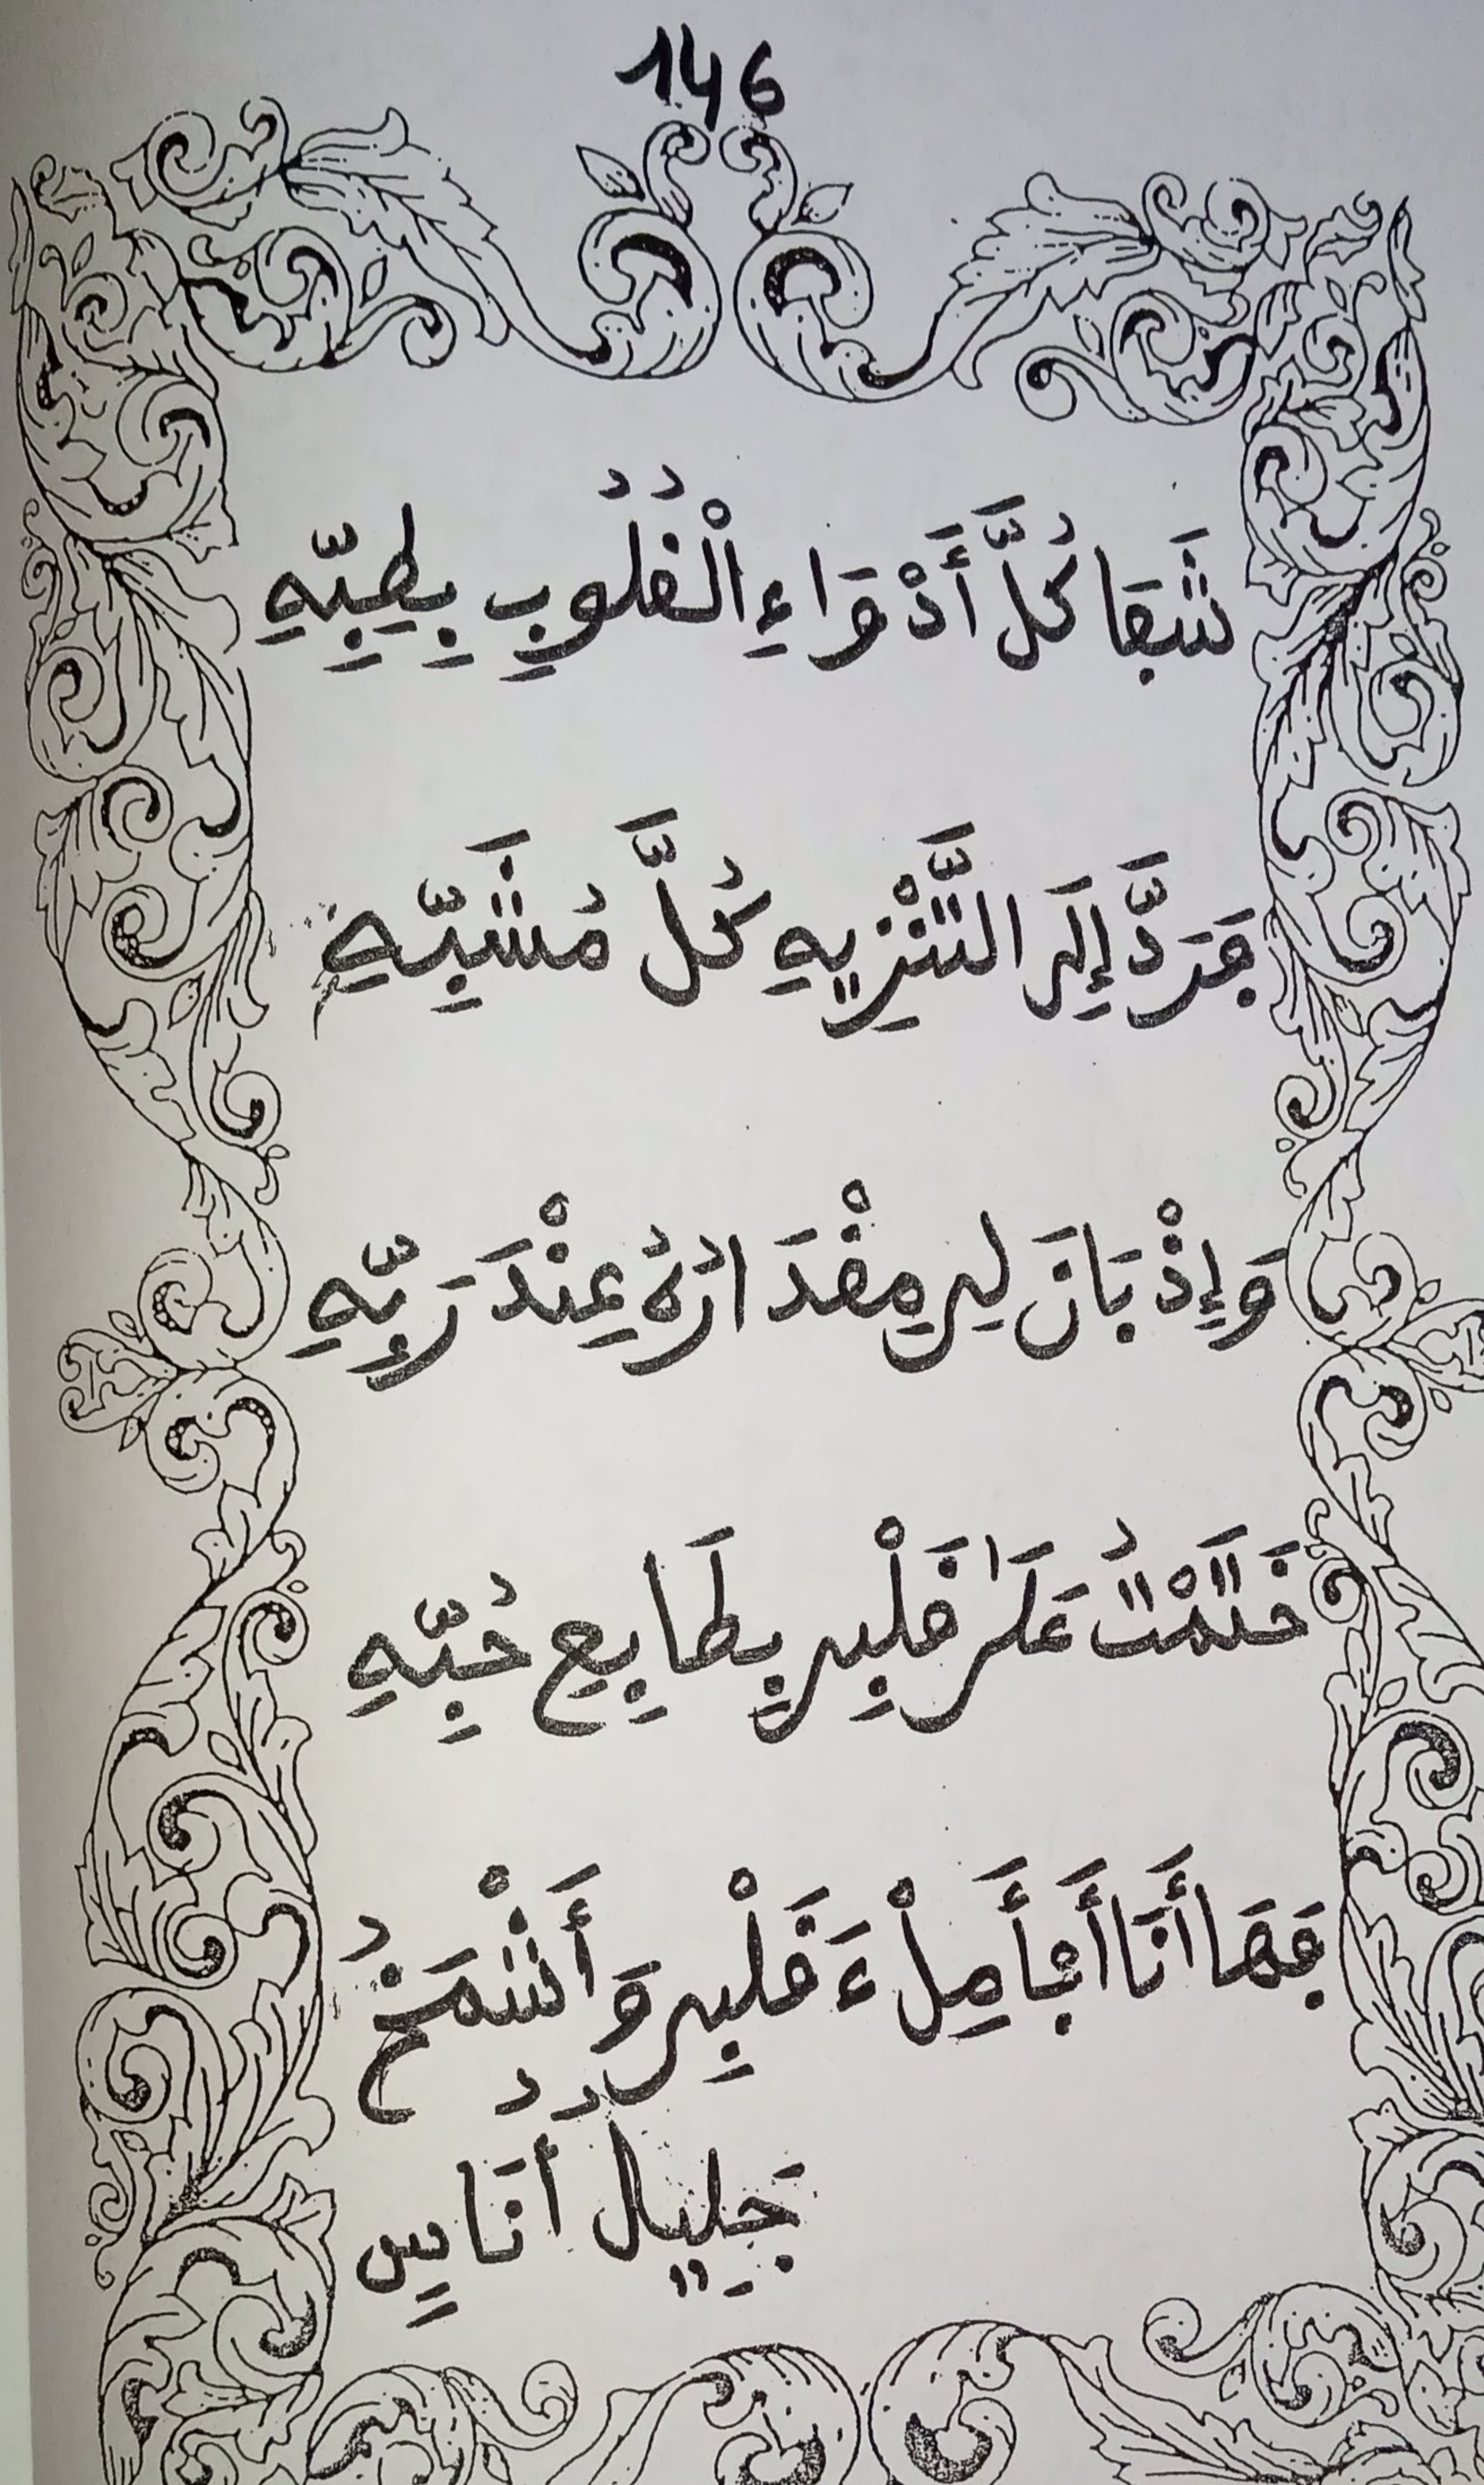 146
شَفَا كُلَّ أَدْوَاءِ الْقُلُوبِ بِطِبِّهِ
فَرَدَّ إِلَى التَّنْزِيهِ كُلَّ مُشَبِّهِ
وَإِذْ بَانَ لِي مِقْدَارُهُ عِنْدَ رَبِّهِ
خَتَمْتُ عَلَى قَلْبِي بِطَابِعِ حُبِّهِ
فَهَا أَنَا أَبْأَ مِلْءَ قَلْبِي وَأَشْمَخُ
جَلِيلُ أُنَاسٍ